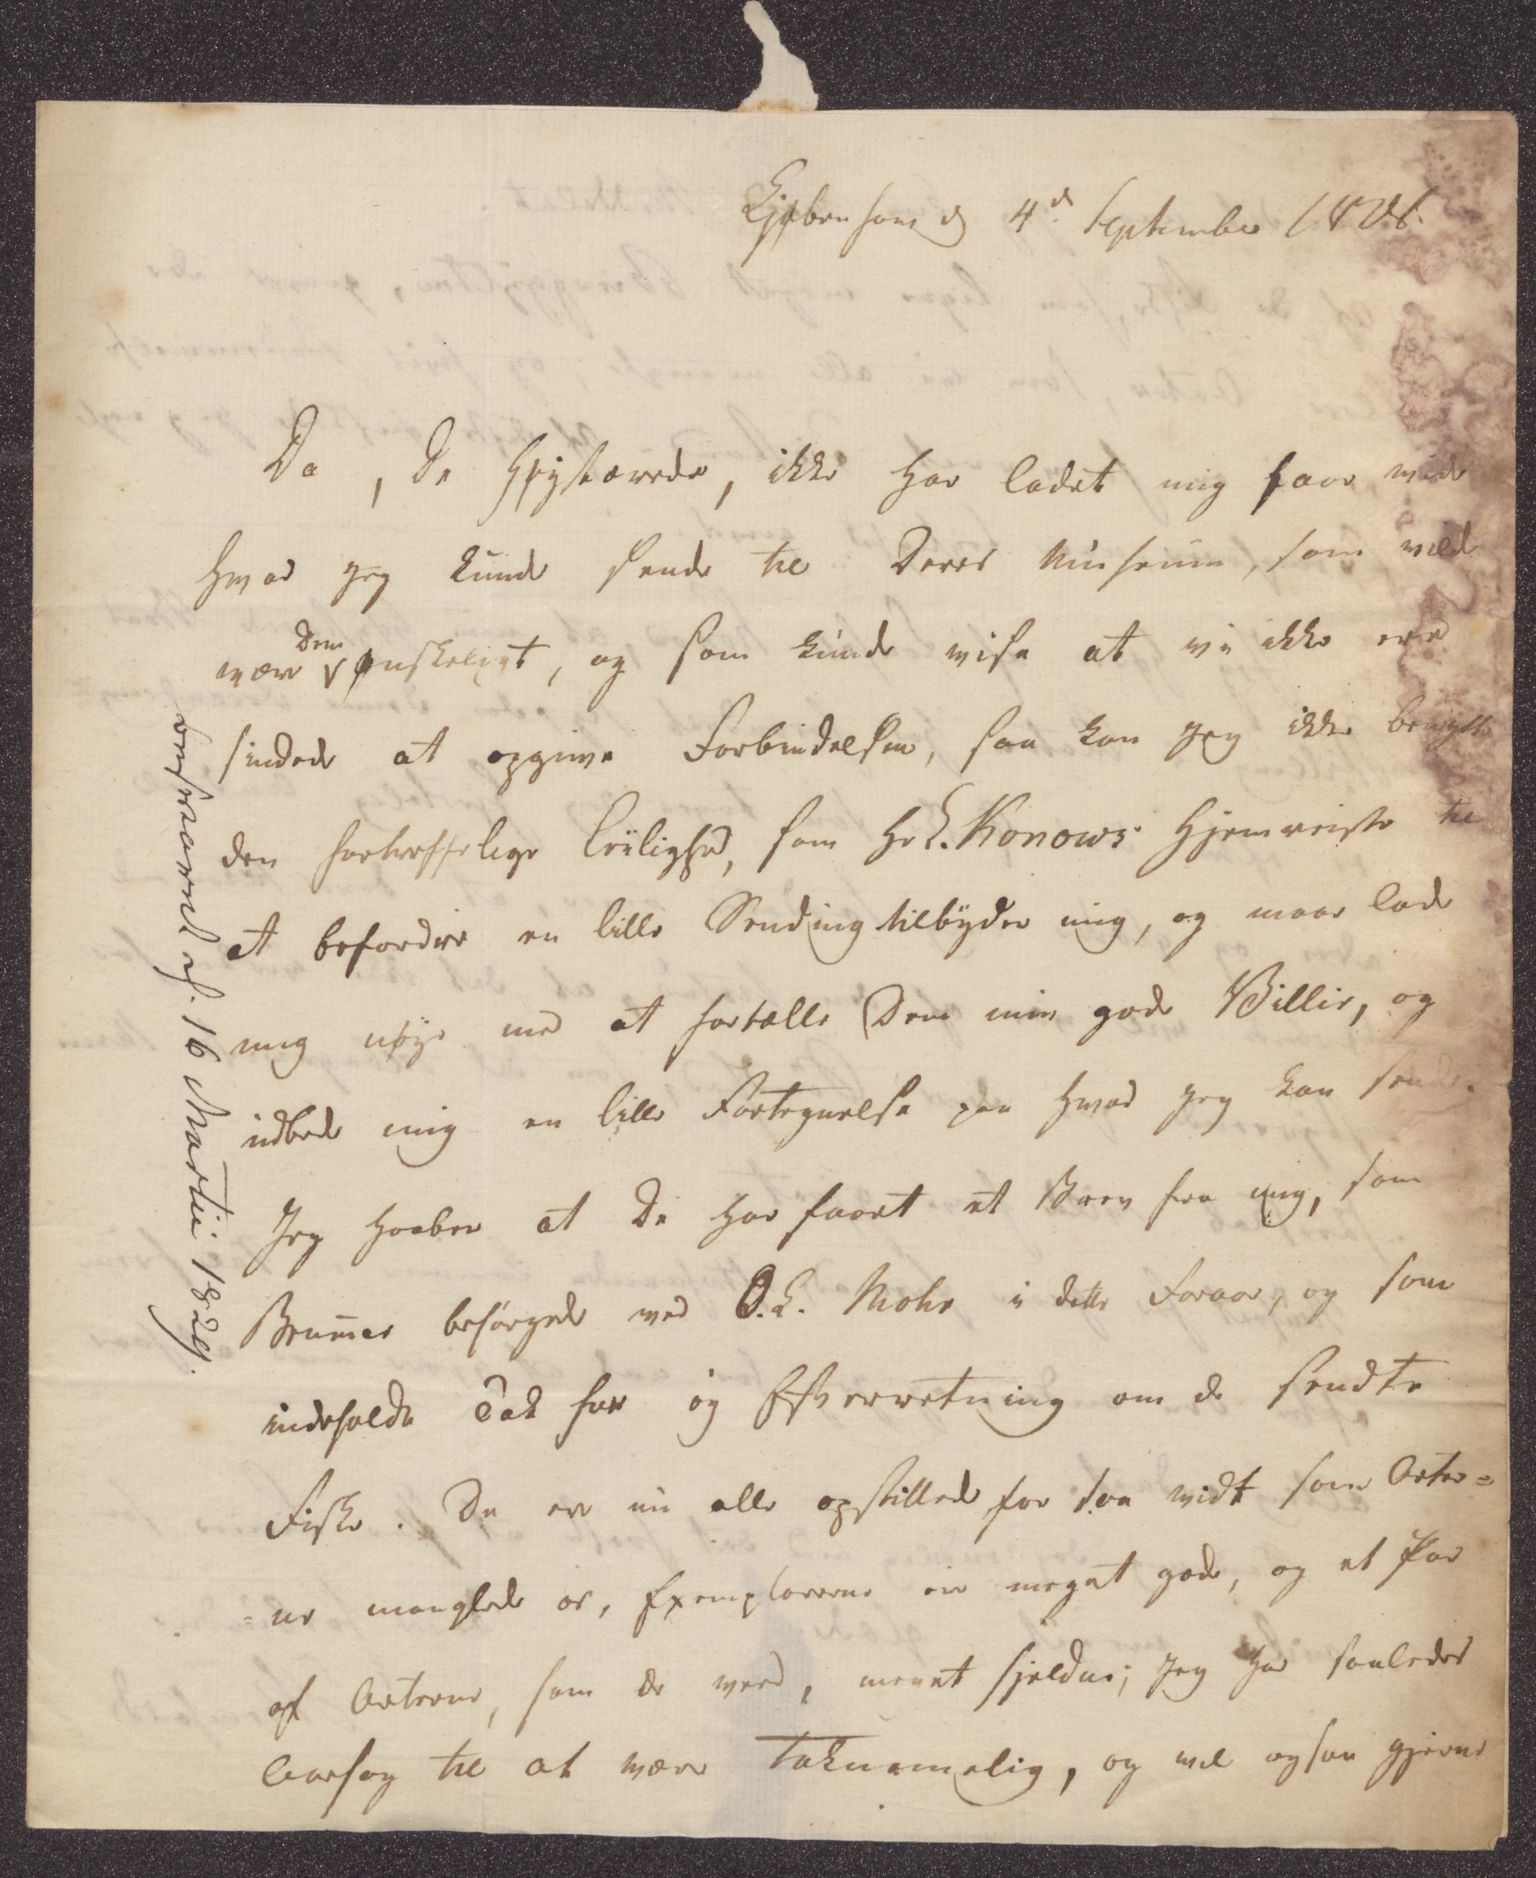 Kjøbenhavn d 4d September 1828.
Da, De Høystærede, ikke har ladet mig faae vide
hvad jeg kunde sende til Deres Museum, som vilde
være Dem ønskeligt, og som kunde vise at vi ikke ere
sindede at opgive Forbindelsen, saa kan jeg ikke benytte
den fortreffelige Leilighed, som Hr. L. Konows Hjemreise til
at befordre en lille Sending tilbyder mig, og maae lade
mig nøye med at fortælle Dem min gode Villie, og
udbede mig en lille Fortegnelse paa hvad jeg kan sende.
Jeg haaber at De har faaet et Brev fra mig, som
Brunner besørgede med O.L. Mohr i dette Foraar, og som
indeholdt Tak for og Efterretning om de sendte
Fiske. De ere nu alle opstillede for saa vidt som Arter=
=ne manglede os, Exemplarerne ere meget gode, og et Par
af Arterne, som De veed, meget sjeldne; jeg har saaledes
Aarsag til at være taknemmelig, og vil ogsaa gjerne
besvaret d. 16 Martii 1829.